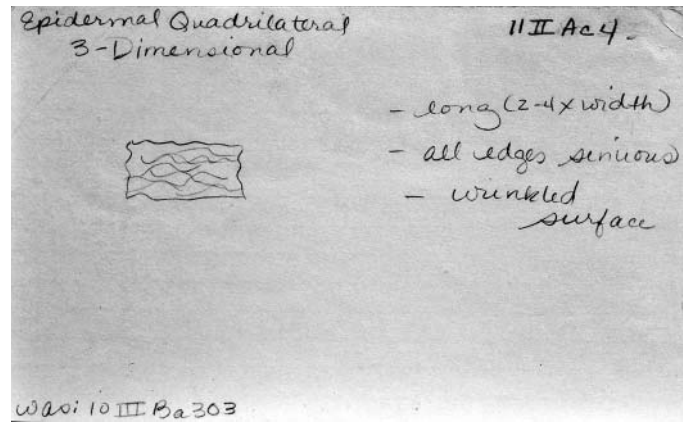 Epidermal Quadrilateral
3-Dimensional
11 II Ac 4.
- long (2-4x width)
- all edges sinuous
- wrinkled
surface
waoi 10 III Ba303